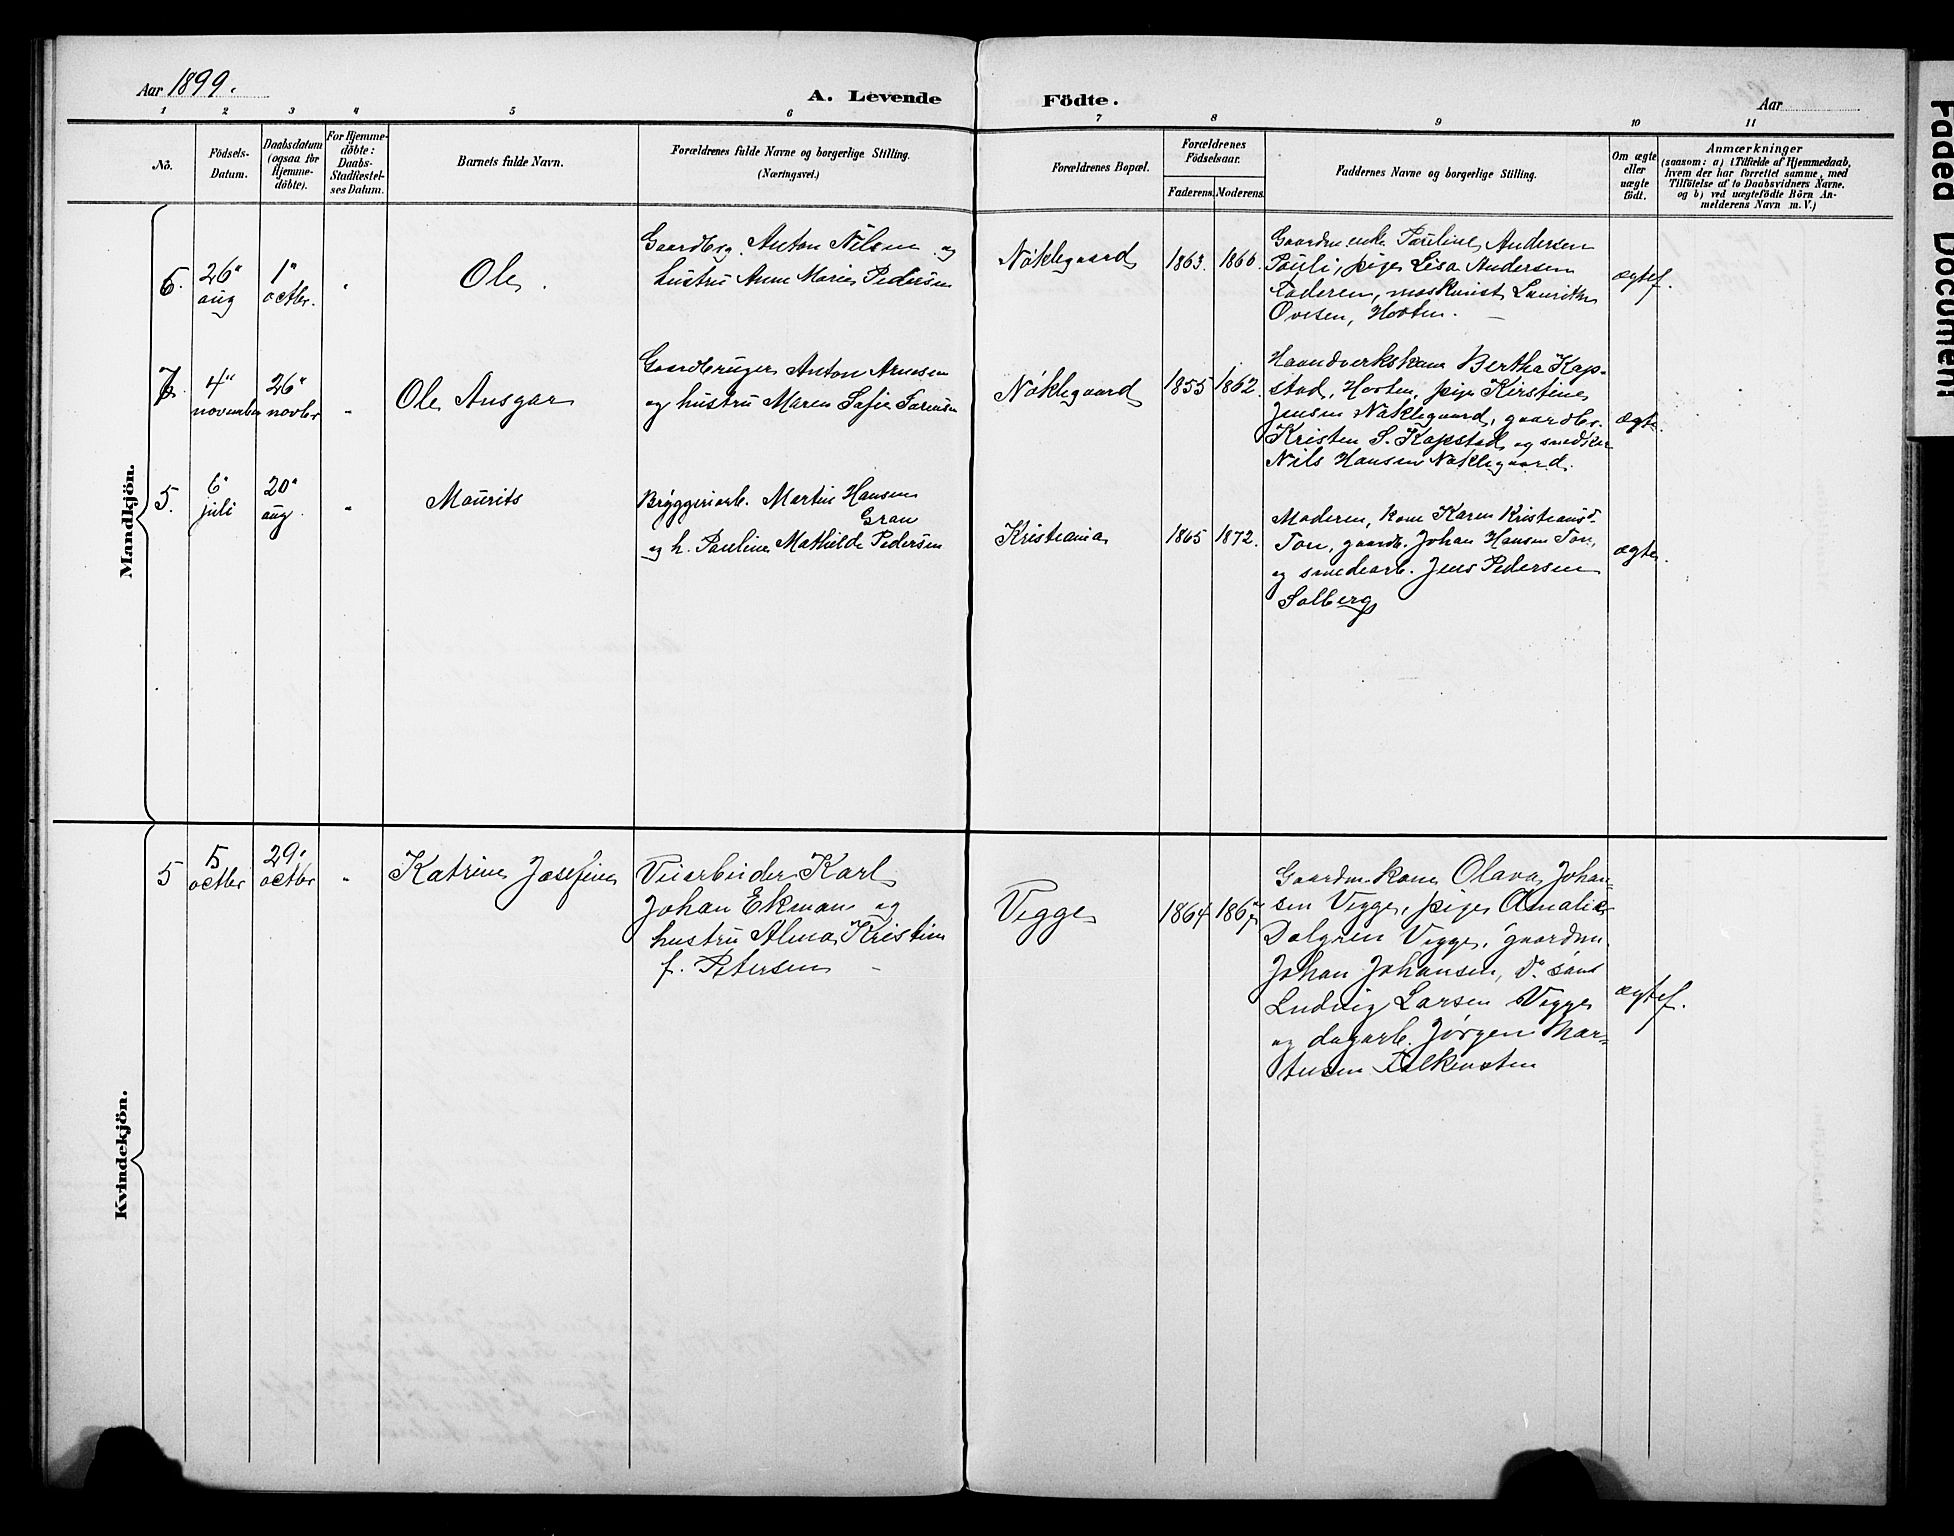 Aar 1899.
A. Levende Födte.
Aar
1 2 3 4 5 6 7 8 9 10 11
No.
Födsels-
Datum.
Daabsdatum
(ogsaa for
Hjemme-
döbte).
For Hjemme-
döbte:
Daabs-
Stadfæstel-
ses Datum.
Barnets fulde Navn.
Forældrenes fulde Navne og borgerlige Stilling.
(Næringsvei.)
Forældrenes Bopæl.
Forældrenes
Födselsaar.
Faderens. Moderens.
Faddernes Navne og borgerlige Stilling.
Om ægte
eller
uægte
födt.
Anmærkninger
(saasom: a) i Tilfælde af Hjemmedaab,
hvem der har forrettet samme, med
Tilföielse af to Daabsvidners Navne.
og b) ved uægtefödte Börn An-
melderens Navn m. V.)
Mandkjön.
6.
26"
aug
1"
octbr.
"
Ole.
Gaardbrg. Anton Nilsen og
hustru Anne Marie Pedersen
Nøklegaard
1863. 1860.
Gaardm enke Pauline Andersen
Pauli, pige Lisa Andersen
Faderen, maskinist Laurith
Ovesen, Horten.
ægtef.
7.
4"
november
26"
novbr
"
Ole Ansgar
Gaardbruger Anton Arnesen
og hustru Maren Sofie
Nøklegaard
1855 1862.
Haandverkskone Bertha Kap-
stad, Horten, pige Kirstine
Jensen Nøklegaard, gaardbr.
Kristen S. Kapstad og snedker
Nils Hansen Nøklegaard.
ægte.
5.
6"
juli
20"
aug.
"
Maurits
Bryggeriarb. Martin Hansen
Gran
og h. Pauline Mathilde Pedersen
Kristiania
1865 1872.
Moderen, kone Karen Kristiansd.
Ton, gaardb. Johan Hansen Ton,
og smedearb. Jens Pedersen
Solberg
ægte.
Kvindekjön.
5
5
octbr
29"
octbr
"
Katrine Josefine
Veiarbeider Karl
Johan Ekman og
hustru Alma Kristine
f. Petersen
Vegge
1864 1867
Gaardm. kone Olava Johan-
sen Vegge, pige Amalie
Dalgren Vegge, gaardm.
Johan Johansen, do. søns
Ludvig Larsen Vegge
og dagarb. Jørgen Mar-
tinsen Falkensten
ægtef.
Faded Document